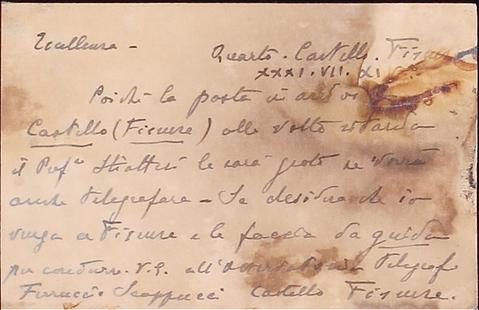 Eccellenza -
Quarto. Castello. Firenze
XXXI. VII. XI
Poichè la posta in
Castello (Firenze) alle volte ritarda
il Prof. le sarà grato se vorrà
anche telegrafare - Se desidera che io
venga a Firenze e le faccia da guida
per condurre V.S. all'Osservatorio telegraf
Ferruccio Scappucci Castello Firenze.